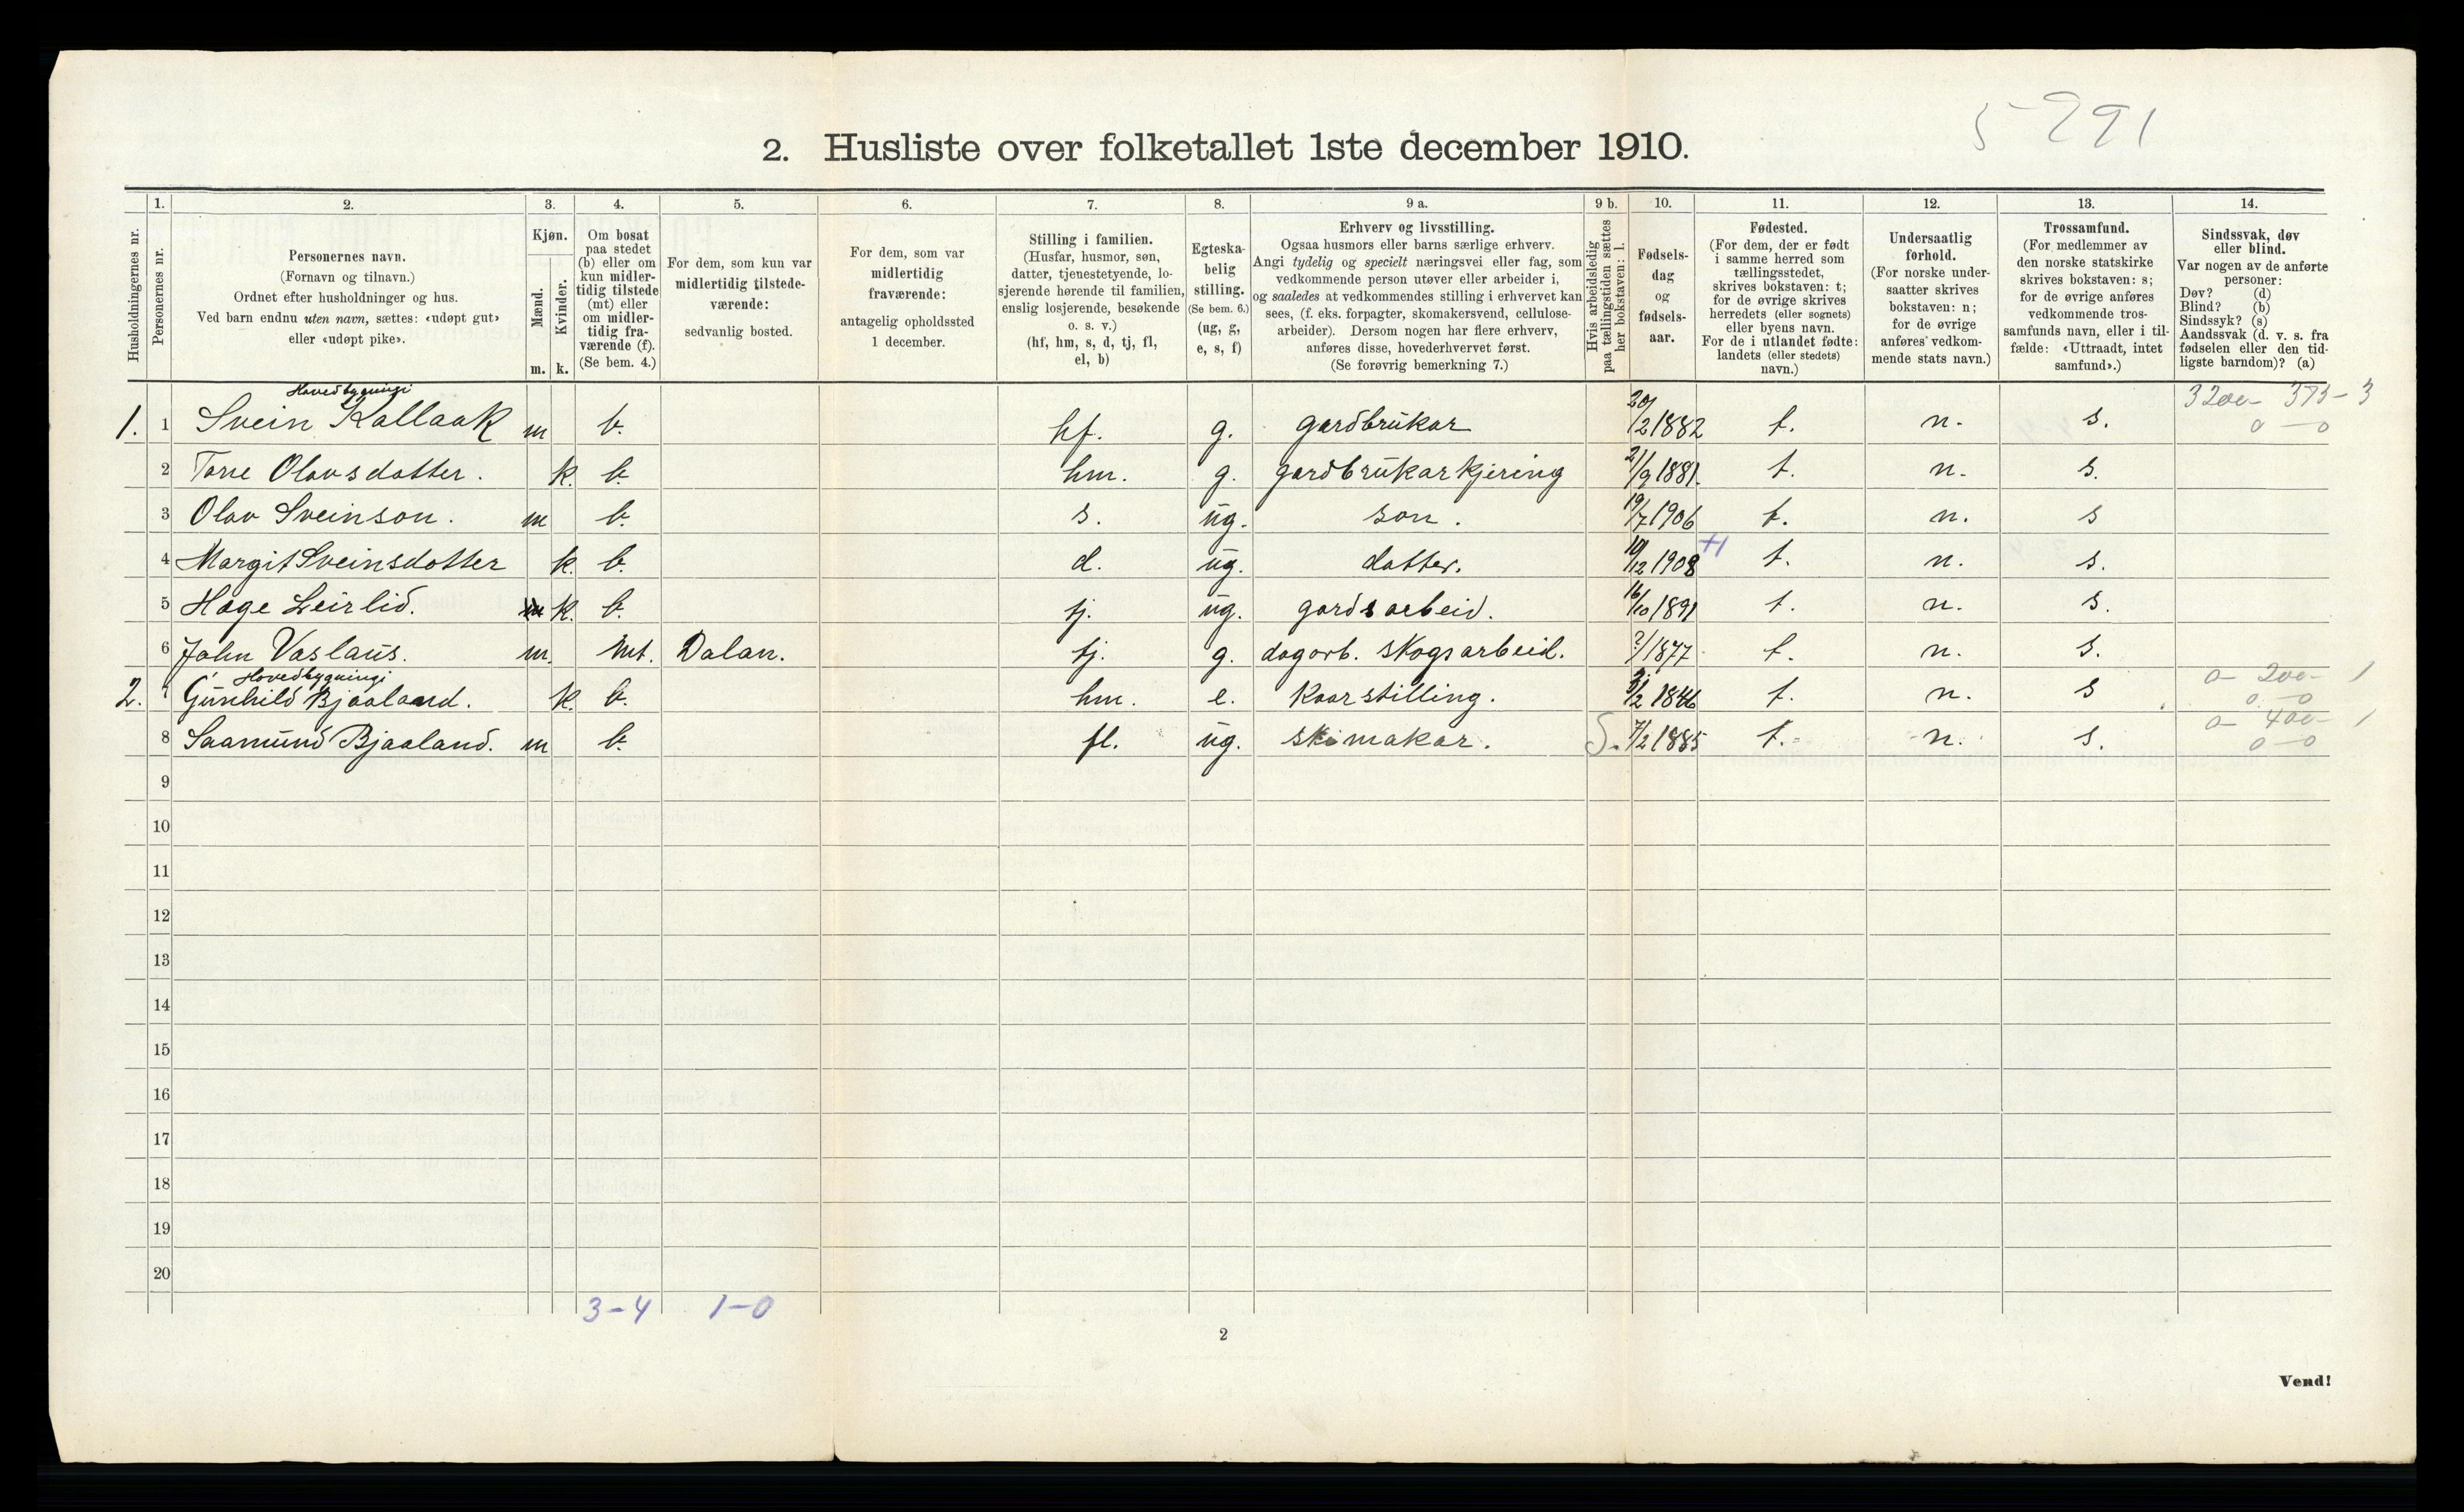 5-291
2. Husliste over folketallet 1ste december 1910.
Husholdningernes nr.
1.
Personernes nr.
2.
Personernes navn.
(Fornavn og tilnavn.)
Ordnet efter husholdninger og hus.
Ved barn endnu uten navn, sættes: «udøpt gut»
eller «udøpt pike».
3.
Kjøn.
Mænd.
m.
Kvinder.
k.
4.
Om bosat
paa stedet
(b) eller om
kun midler-
tidig tilstede
(mt) eller
om midler-
tidig fra-
værende (f).
(Se bem. 4.)
5.
For dem, som kun var
midlertidig tilstede-
værende:
sedvanlig bosted.
6.
For dem, som var
midlertidig
fraværende:
antagelig opholdssted
1 december.
7.
Stilling i familien.
(Husfar, husmor, søn,
datter, tjenestetyende, lo-
sjerende hørende til familien,
enslig losjerende, besøkende
o. s. v.)
(hf, hm, s, d, tj, fl,
el, b)
8.
Egteska-
belig
stilling.
(Se bem. 6.)
(ug, g,
e, s, f)
9 a.
Erhverv og livsstilling.
Ogsaa husmors eller barns særlige erhverv.
Angi tydelig og specielt næringsvei eller fag, som
vedkommende person utøver eller arbeider i,
og saaledes at vedkommendes stilling i erhvervet kan
sees, (f. eks. forpagter, skomakersvend, cellulose-
arbeider). Dersom nogen har flere erhverv,
anføres disse, hovederhvervet først.
(Se forøvrig bemerkning 7.)
9 b.
Hvis arbeidsledig
paa tællingstiden sættes
her bokstaven: l.
10.
Fødsels-
dag
og
fødsels-
aar.
11.
Fødested.
(For dem, der er født
i samme herred som
tællingsstedet,
skrives bokstaven: t;
for de øvrige skrives
herredets (eller sognets)
eller byens navn.
For de i utlandet fødte:
landets (eller stedets)
navn.)
12.
Undersaatlig
forhold.
(For norske under-
saatter skrives
bokstaven: n;
for de øvrige
anføres vedkom-
mende stats navn.)
13.
Trossamfund.
(For medlemmer av
den norske statskirke
skrives bokstaven: s;
for de øvrige anføres
vedkommende tros-
samfunds navn, eller i til-
fælde: «Uttraadt, intet
samfund».)
14.
Sindssvak, døv
eller blind.
Var nogen av de anførte
personer:
Døv? (d)
Blind? (b)
Sindssyk? (s)
Aandssvak (d. v. s. fra
fødselen eller den tid-
ligste barndom)? (a)
Hovedbygningi 3200- 373-3
1. 1 Svein Kallaak m b. hf. g. gardbrukar 20/2 1882 t. n. s. 0-0
2 Tone Olavsdatter. k. b. hm. g. gardbrukarkjering 21/9 1881. t. n. s.
3 Olav Sveinson. m b. s. ug. son. 19/7 1906 t. n. s
4 Margit Sveinsdotter k. b. d. ug. dotter. 10/12 1908 +1 t. n. s.
5 Hæge Leirlid. k. b. tj. ug. gardsarbeid. 16/10 1891 t. n. s.
6 John Vaslaus. m. mt. Dalan. tj. g. dagarb. skogsarbeid. ?/1877 t. n. s.
Hovedbygningi 0- 200- 1
2. 7 Gunhild Bjaaland. k. b. hm. e. Kaarstilling. /2 1846 t. n. s 0-0
0- 400- 1
8 Saamund Bjaaland. m b. fl. ug. skimakar. S. 7/2 1885 t. n. s. 0-0
9
10
11
12
13
14
15
16
17
18
19
20
3-4 1-0
2
Vend!